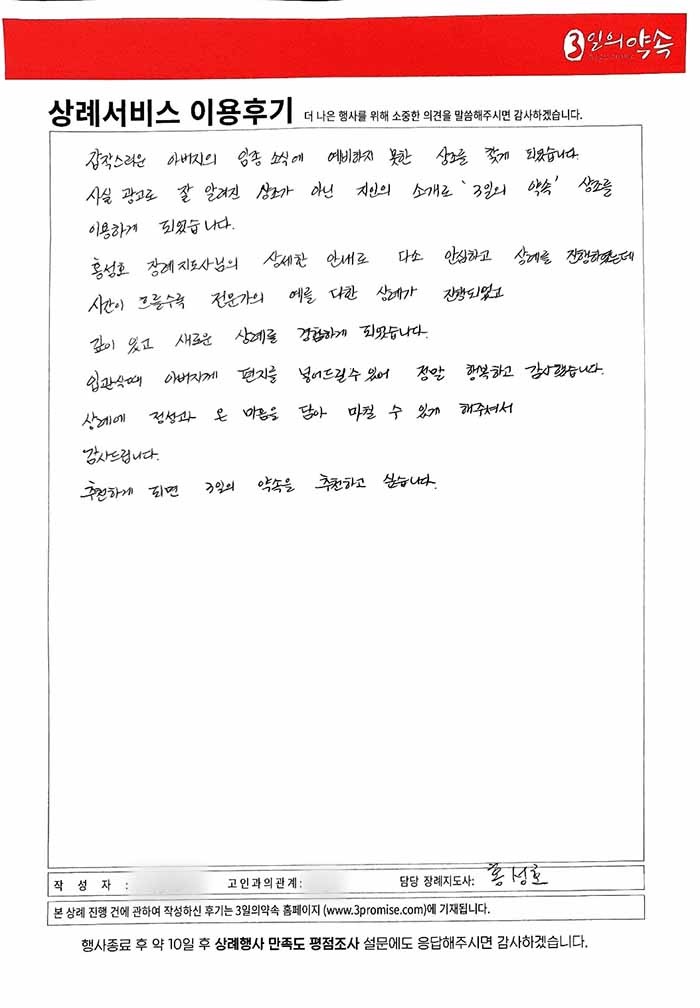 3일의약속
상례서비스 이용후기 더 나은 행사를 위해 소중한 의견을 말씀해주시면 감사하겠습니다.
갑작스러운 아버지의 임종 소식에 예비하지 못한 상조를 찾게 되었습니다.
사실 광고로 잘 알려진 상조가 아닌 지인의 소개로 '3일의 약속' 상조를
이용하게 되었습니다.
홍성호 장례지도사님의 상세한 안내로 다소 안심하고 상례를 진행하였는데
시간이 흐를수록 전문가의 예를 다한 상례가 진행되었고
깊이 있고 새로운 상례를 경험하게 되었습니다.
입관식때 아버지께 편지를 넣어드릴수 있어 정말 행복하고 감사했습니다.
상례에 정성과 온 마음을 담아 마칠 수 있게 해주셔서
감사드립니다.
추천하게 되면 3일의 약속을 추천하고 싶습니다.
작 성 자 : 고인과의관계: 담당 장례지도사: 홍성호
본 상례 진행 건에 관하여 작성하신 후기는 3일의약속 홈페이지 (www.3promise.com)에 기재됩니다.
행사종료 후 약 10일 후 상례행사 만족도 평점조사 설문에도 응답해주시면 감사하겠습니다.